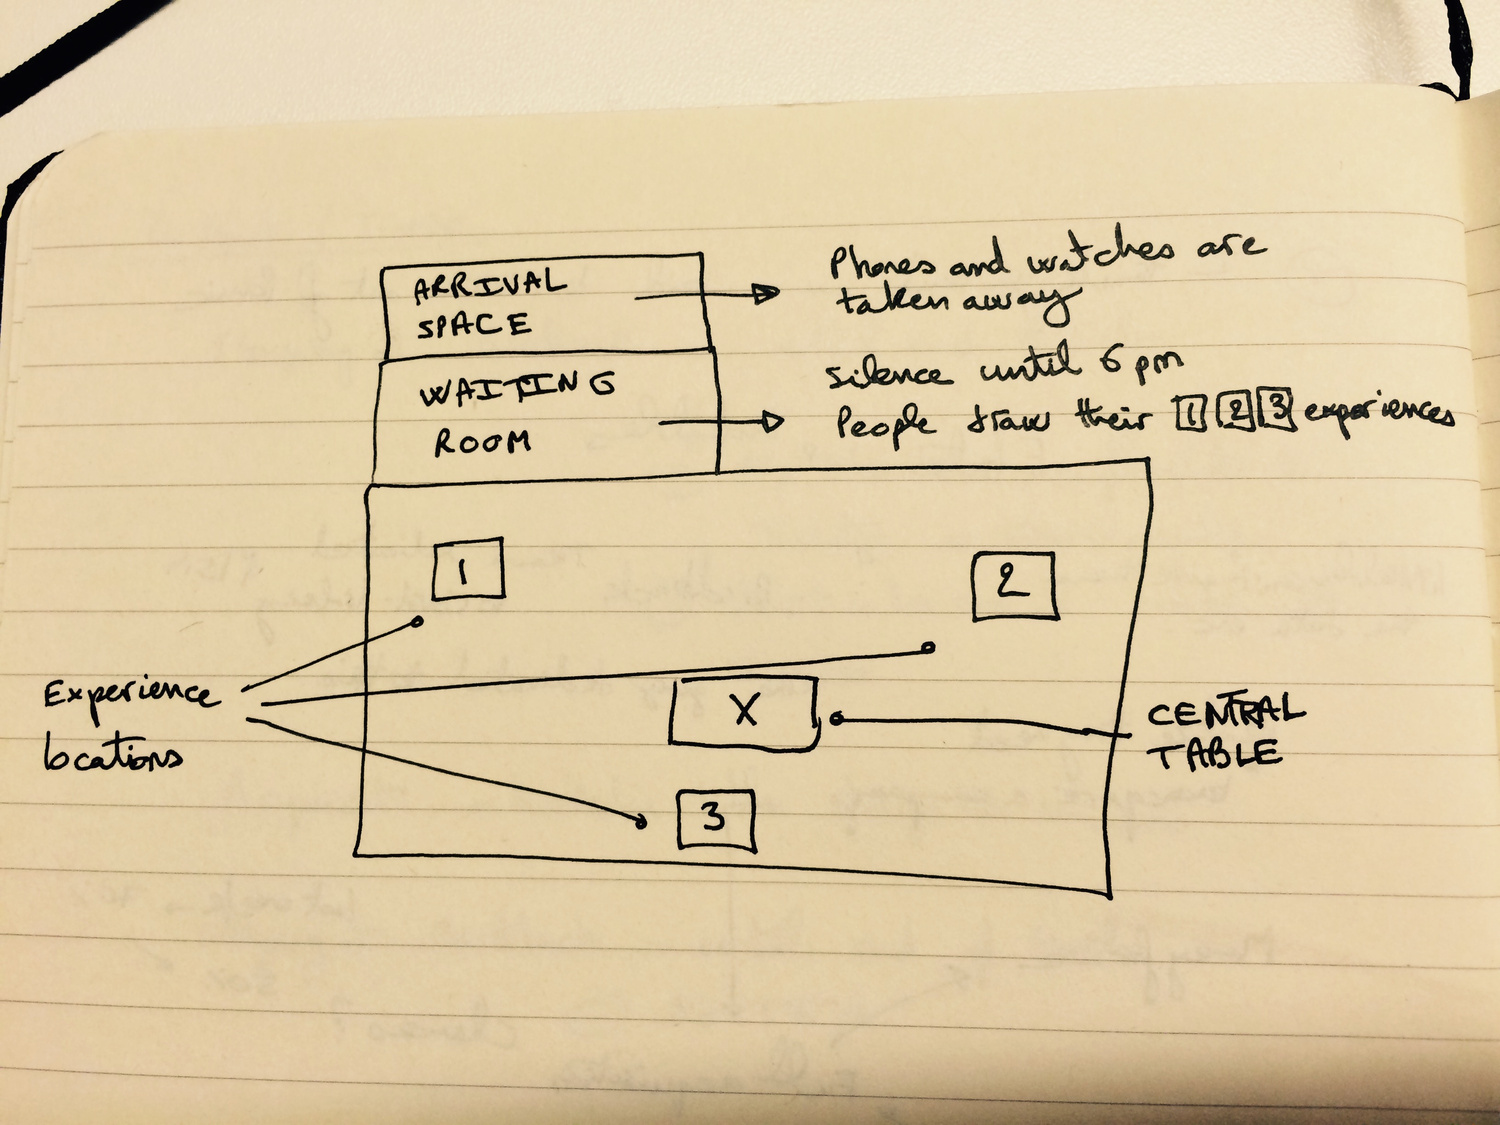 ARRIVAL
SPACE
Phones and watches are
taken away
WAITING
ROOM
Silence until 6 pm
People draw their 1 2 3 experiences
1
2
Experience
locations
X
CENTRAL
TABLE
3